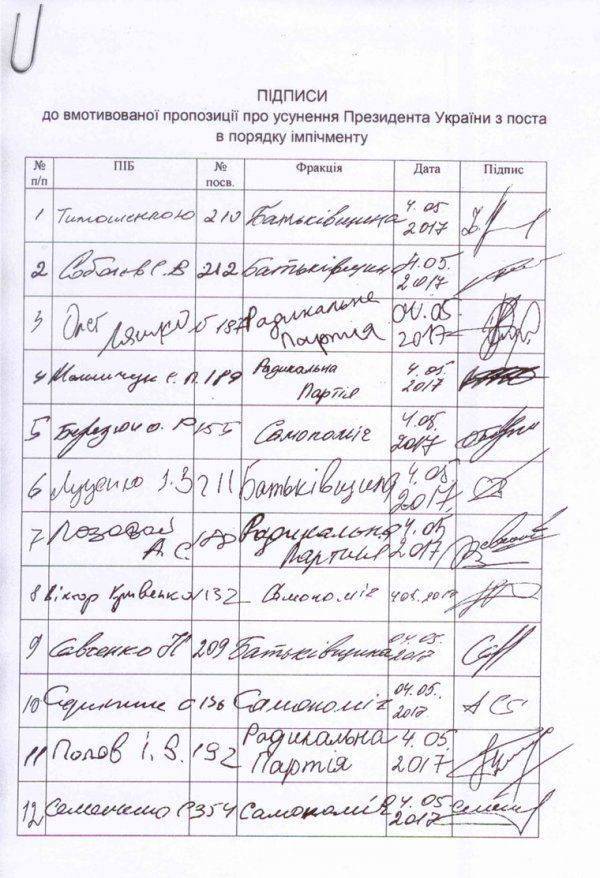 ПІДПИСИ
до вмотивованої пропозиції про усунення Президента України з поста
в порядку імпічменту
№ п/п ПІБ № посв. Фракція Дата Підпис
1 Тимошенко Ю 210 Батьківщина 4.05. 2017
2 Соболєв С.В 212 Батьківщин 4.05. 2017
3 Олег Ляшко 187 Радикальне Партія 04.05. 2017
4 189 Радикальна Партія 4.05. 2017
5 Березюк О. Р 155 Самопоміч 4.05. 2017
6 Луценко І.В 211 Батьківщина 4.05. 2017
7 Лозовой А.С. Радикальна Партия 4.05 2017
8 Віктор Кривенко 132 Самопоміч 4.05.2017
9 Савченко Н 209 Батьківщина 04.05. 2017
10 136 Самопоміч 04.05. 2017
11 Попов І.В. 192 Радикальна Партія 4.05. 2017
12 Семенченко С 354 Самопоміч 4.05. 2017